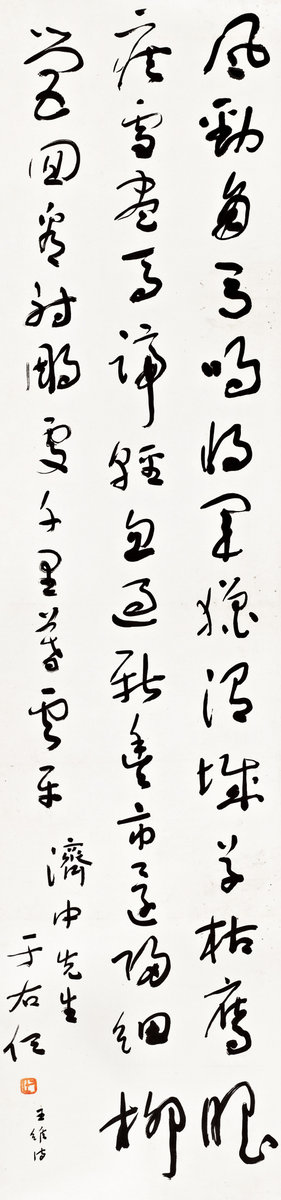 風勁角弓鳴將軍獵渭城草枯鷹眼
疾雪盡馬蹄輕忽過新豐市還歸細柳
營回看射鵰處千里暮雲平
濟中先生
于右任
王維詩